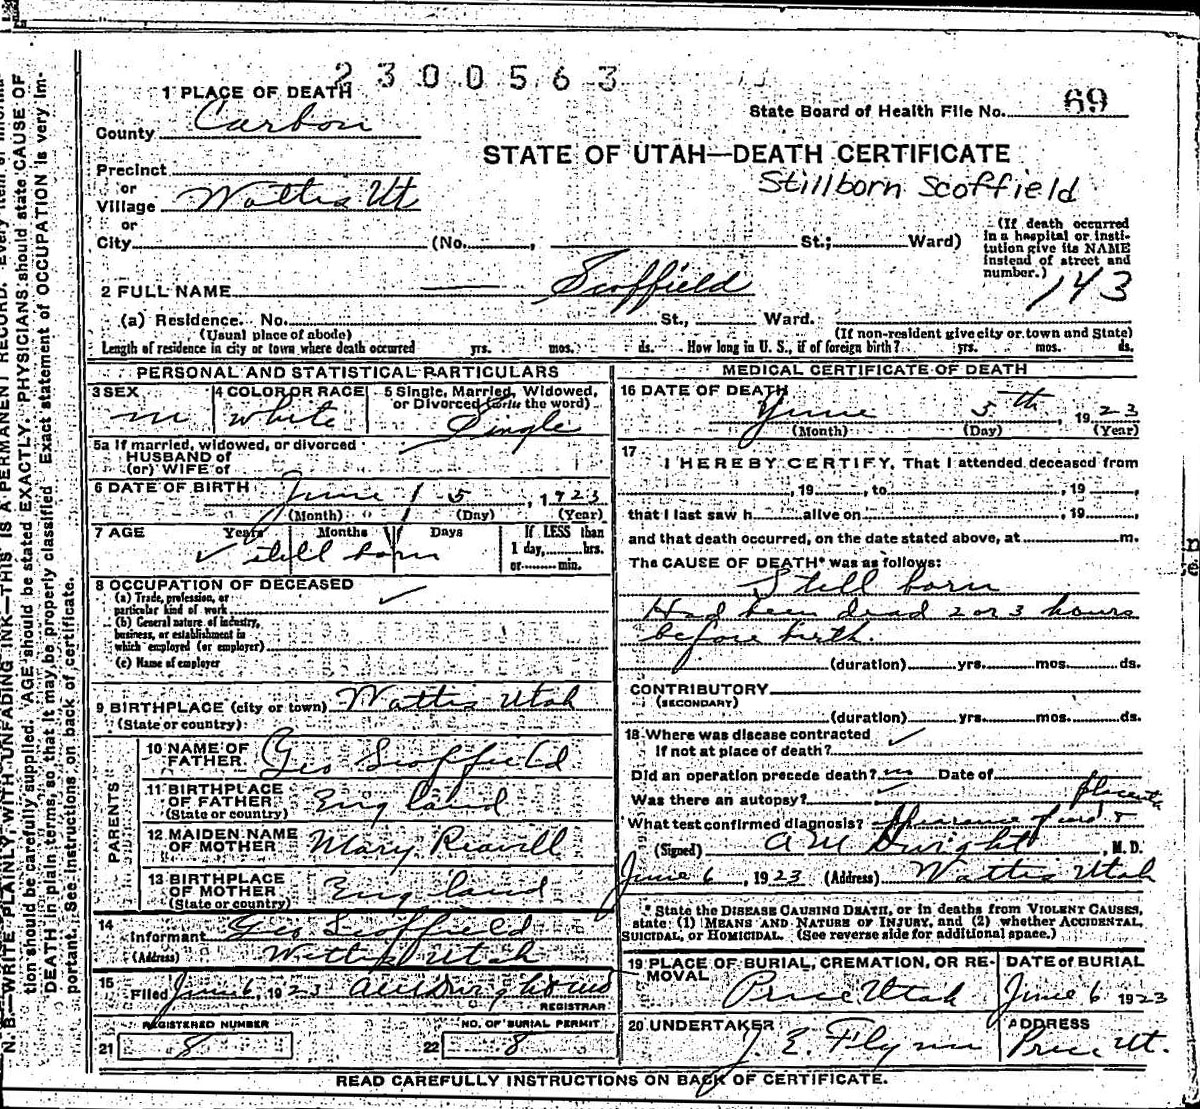 2300563
1 PLACE OF DEATH
State Board of Health File No. 69
County Carbon
STATE OF UTAH—DEATH CERTIFICATE
Stillborn Scoffield
Precinct
or
Village Wattis Ut
or
City (No. , St.; Ward)
(If death occurred in a hospital or insti-
tution give its NAME
instead of street and
number.)
143
2 FULL NAME Scoffield
(a) Residence. No. St., Ward.
(Usual place of abode) (If non-resident give city or town and State)
Length of residence in city or town where death occurred yrs. mos. ds. How long in U. S., if of foreign birth? yrs. mos. ds.
PERSONAL AND STATISTICAL PARTICULARS
3 SEX m
4 COLOR OR RACE white
5 Single, Married, Widowed,
or Divorced (write the word)
Single
5a If married, widowed, or divorced
HUSBAND of
(or) WIFE of
6 DATE OF BIRTH June 5, 1923
(Month) (Day) (Year)
7 AGE Years Months Days If LESS than
1 day, hrs.
or min.
still born
8 OCCUPATION OF DECEASED
(a) Trade, profession, or
particular kind of work
(b) General nature of industry,
business, or establishment in
which employed (or employer)
(c) Name of employer
9 BIRTHPLACE (city or town) Wattis Utah
(State or country)
PARENTS
10 NAME OF
FATHER Geo Scoffield
11 BIRTHPLACE
OF FATHER England
(State or country)
12 MAIDEN NAME
OF MOTHER Mary
13 BIRTHPLACE
OF MOTHER England
(State or country)
14
Informant Geo Scoffield
(Address) Wattis Utah
15
Filed June 6, 1923 AM Dwight MD
REGISTRAR
REGISTERED NUMBER
21 8
NO. OF BURIAL PERMIT
22 8
MEDICAL CERTIFICATE OF DEATH
16 DATE OF DEATH
June 5th, 1923
(Month) (Day) (Year)
17
I HEREBY CERTIFY, That I attended deceased from
, 19 , to , 19 ,
that I last saw h alive on , 19 ,
and that death occurred, on the date stated above, at m.
The CAUSE OF DEATH* was as follows:
Still born
Had been dead 2 or 3 hours
before birth.
(duration) yrs. mos. ds.
CONTRIBUTORY
(SECONDARY)
(duration) yrs. mos. ds.
18 Where was disease contracted
if not at place of death?
Did an operation precede death? no Date of
Was there an autopsy?
What test confirmed diagnosis? Appearance of cord &
placenta
(Signed) AM Dwight, M. D.
June 6, 1923 (Address) Wattis Utah
* State the DISEASE CAUSING DEATH, or in deaths from VIOLENT CAUSES,
state (1) MEANS AND NATURE OF INJURY, and (2) whether ACCIDENTAL,
SUICIDAL, or HOMICIDAL. (See reverse side for additional space.)
19 PLACE OF BURIAL, CREMATION, OR RE-
MOVAL
Price Utah
DATE OF BURIAL
June 6 1923
20 UNDERTAKER
J. E. Flynn
ADDRESS
Price Ut.
READ CAREFULLY INSTRUCTIONS ON BACK OF CERTIFICATE.
N. B.—WRITE PLAINLY, WITH UNFADING INK—THIS IS A PERMANENT RECORD. Every item of informa-
tion should be carefully supplied. AGE should be stated EXACTLY. PHYSICIANS should state CAUSE OF
DEATH in plain terms, so that it may be properly classified. Exact statement of OCCUPATION is very im-
portant. See instructions on back of certificate.